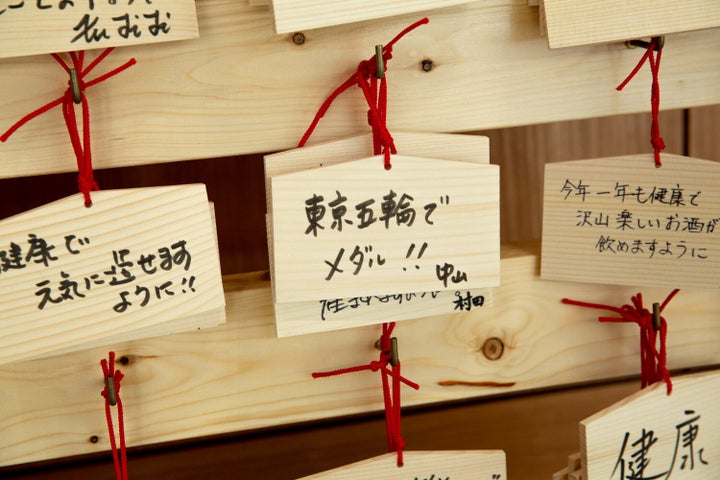 健康で
元気に過せます
ように!!
東京五輪で
メダル!!
中山
村田
今年一年も健康で
沢山楽しいお酒が
飲めますように
健康